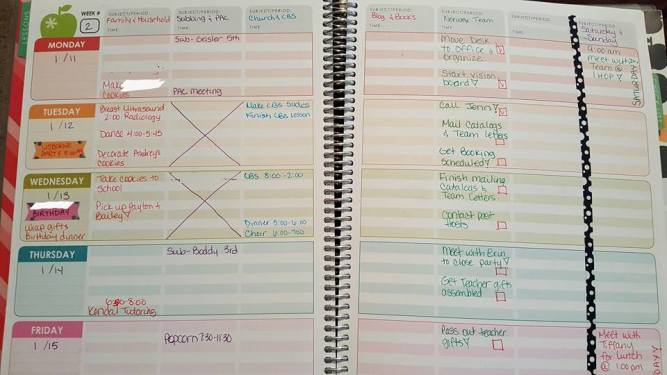 LESSONS
WEEK #
2
SUBJECT/PERIOD:
Family & Household
TIME:
SUBJECT/PERIOD:
Subbing & PAC
TIME:
SUBJECT/PERIOD:
Church/CBS
TIME:
SUBJECT/PERIOD:
Blog & Books
TIME:
SUBJECT/PERIOD:
Team
TIME:
SUBJECT/PERIOD:
TIME:
Saturday &
Sunday
MONDAY
1/11
Make
Cookies
Sub-Geisler 5th
PAC meeting
Move Desk
to Office &
Organize
Start vision
board
9:00 am
meet with
Team @
IHOP
SATURDAY
TUESDAY
1/12
USBORNE
PARTY
Breast Ultrasound
2:00 Radiology
Dance 4:00-5:45
Decorate Audrey's
Cookies
Make CBS Slides
Finish CBS lesson
Call Jenn
Mail Catalogs
& Team letters
Get Booking
Scheduled
WEDNESDAY
1/13
BIRTHDAY
Wrap gifts
Birthday dinner
Take cookies to
School
Pick up Payton &
Bailey
CBS 8:00-2:00
Dinner 5:00-6:00
Choir 6:00-7:00
Finish mailing
Catalogs &
Team Letters
Contact past
Hosts
THURSDAY
1/14
6:30-8:00
Kendal Tutoring
Sub-Boddy 3rd
Meet with Erin
to close party
Get Teacher gifts
assembled
FRIDAY
1/15
Popcorn 7:30-11:30
Pass out teacher
gifts
Meet with
Tiffany
for Lunch
@ 1:00pm